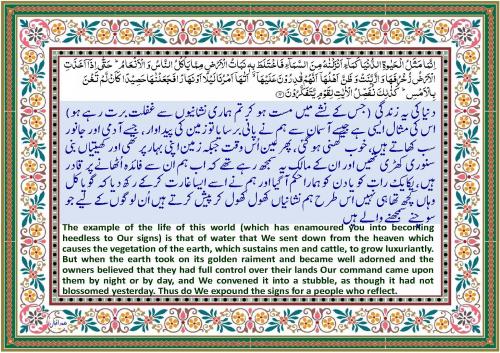 اِنَّمَا مَثَلُ الْحَيٰوةِ الدُّنْيَا كَمَآءٍ اَنْزَلْنٰهُ مِنَ السَّمَآءِ فَاخْتَلَطَ بِهٖ نَبَاتُ الْاَرْضِ مِمَّا يَاْكُلُ النَّاسُ وَ الْاَنْعَامُ ؕ حَتّٰۤى اِذَاۤ اَخَذَتِ
الْاَرْضُ زُخْرُفَهَا وَ ازَّيَّنَتْ وَ ظَنَّ اَهْلُهَاۤ اَنَّهُمْ قٰدِرُوْنَ عَلَيْهَاۤ ۙ اَتٰىهَاۤ اَمْرُنَا لَيْلًا اَوْ نَهَارًا فَجَعَلْنٰهَا حَصِيْدًا كَاَنْ لَّمْ تَغْنَ
بِالْاَمْسِ ؕ كَذٰلِكَ نُفَصِّلُ الْاٰيٰتِ لِقَوْمٍ يَّتَفَكَّرُوْنَ
دنیا کی یہ زندگی ( جس کے نشے میں مست ہو کر تم ہماری نشانیوں سے غفلت برت رہے ہو )
اس کی مثال ایسی ہے جیسے آسمان سے ہم نے پانی برسایا تو زمین کی پیداوار ، جسے آدمی اور جانور
سب کھاتے ہیں ، خوب گھنی ہو گئی ، پھر عین اُس وقت جبکہ زمین اپنی بہار پر تھی اور کھیتیاں بنی
سنوری کھڑی تھیں اور ان کے مالک یہ سمجھ رہے تھے کہ اب ہم ان سے فائدہ اُٹھانے پر قادر
ہیں ، یکایک رات کو یا دن کو ہمارا حکم آ گیا اور ہم نے اسے ایسا غارت کر کے رکھ دیا کہ گویا کل
وہاں کچھ تھا ہی نہیں اس طرح ہم نشانیاں کھول کھول کر پیش کرتے ہیں اُن لوگوں کے لیے جو
سوچنے سمجھنے والے ہیں
The example of the life of this world (which has enamoured you into becoming
heedless to Our signs) is that of water that We sent down from the heaven which
causes the vegetation of the earth, which sustains men and cattle, to grow luxuriantly.
But when the earth took on its golden raiment and became well adorned and the
owners believed that they had full control over their lands Our command came upon
them by night or by day, and We convened it into a stubble, as though it had not
blossomed yesterday. Thus do We expound the signs for a people who reflect.